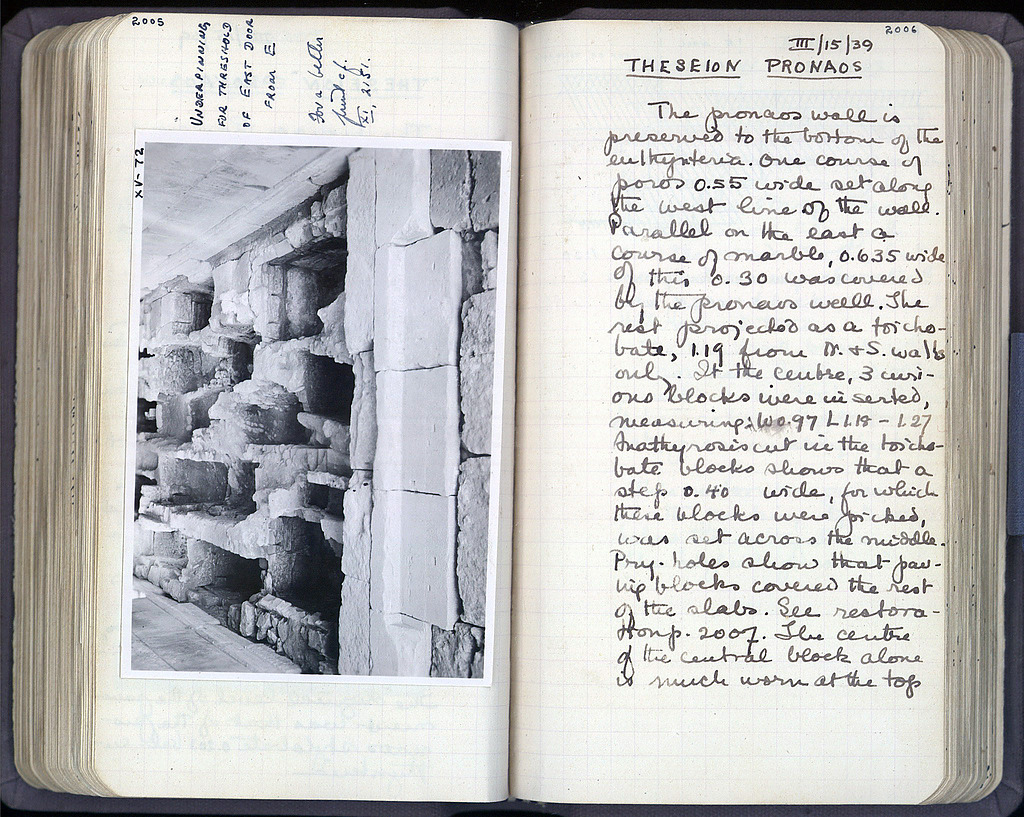 2005
UNDERPINNING
FOR THRESHOLD
OF EAST DOOR
FROM E
For a better
print cf.
XI, 2151.
XV-72
2006
III/15/39
THESEION PRONAOS
The pronaos wall is
preserved to the bottom of the
euthynteria. One course of
poros 0.55 wide set along
the west line of the wall.
Parallel on the east a
course of marble, 0.635 wide
of this 0.30 was covered
by the pronaos wall. The
rest projected as a toicho-
bate, 1.19 from N. + S. walls
only. At the centre, 3 curi-
ous blocks were inserted,
measuring: W 0.97 L 1.18 - 1.27
Anathyrosis cut in the toicho-
bate blocks shows that a
step 0.40 wide, for which
these blocks were picked,
was set across the middle.
Pry-holes show that pav-
ing blocks covered the rest
of the slabs. See restora-
tion p. 2007. The centre
of the central block alone
is much worn at the top